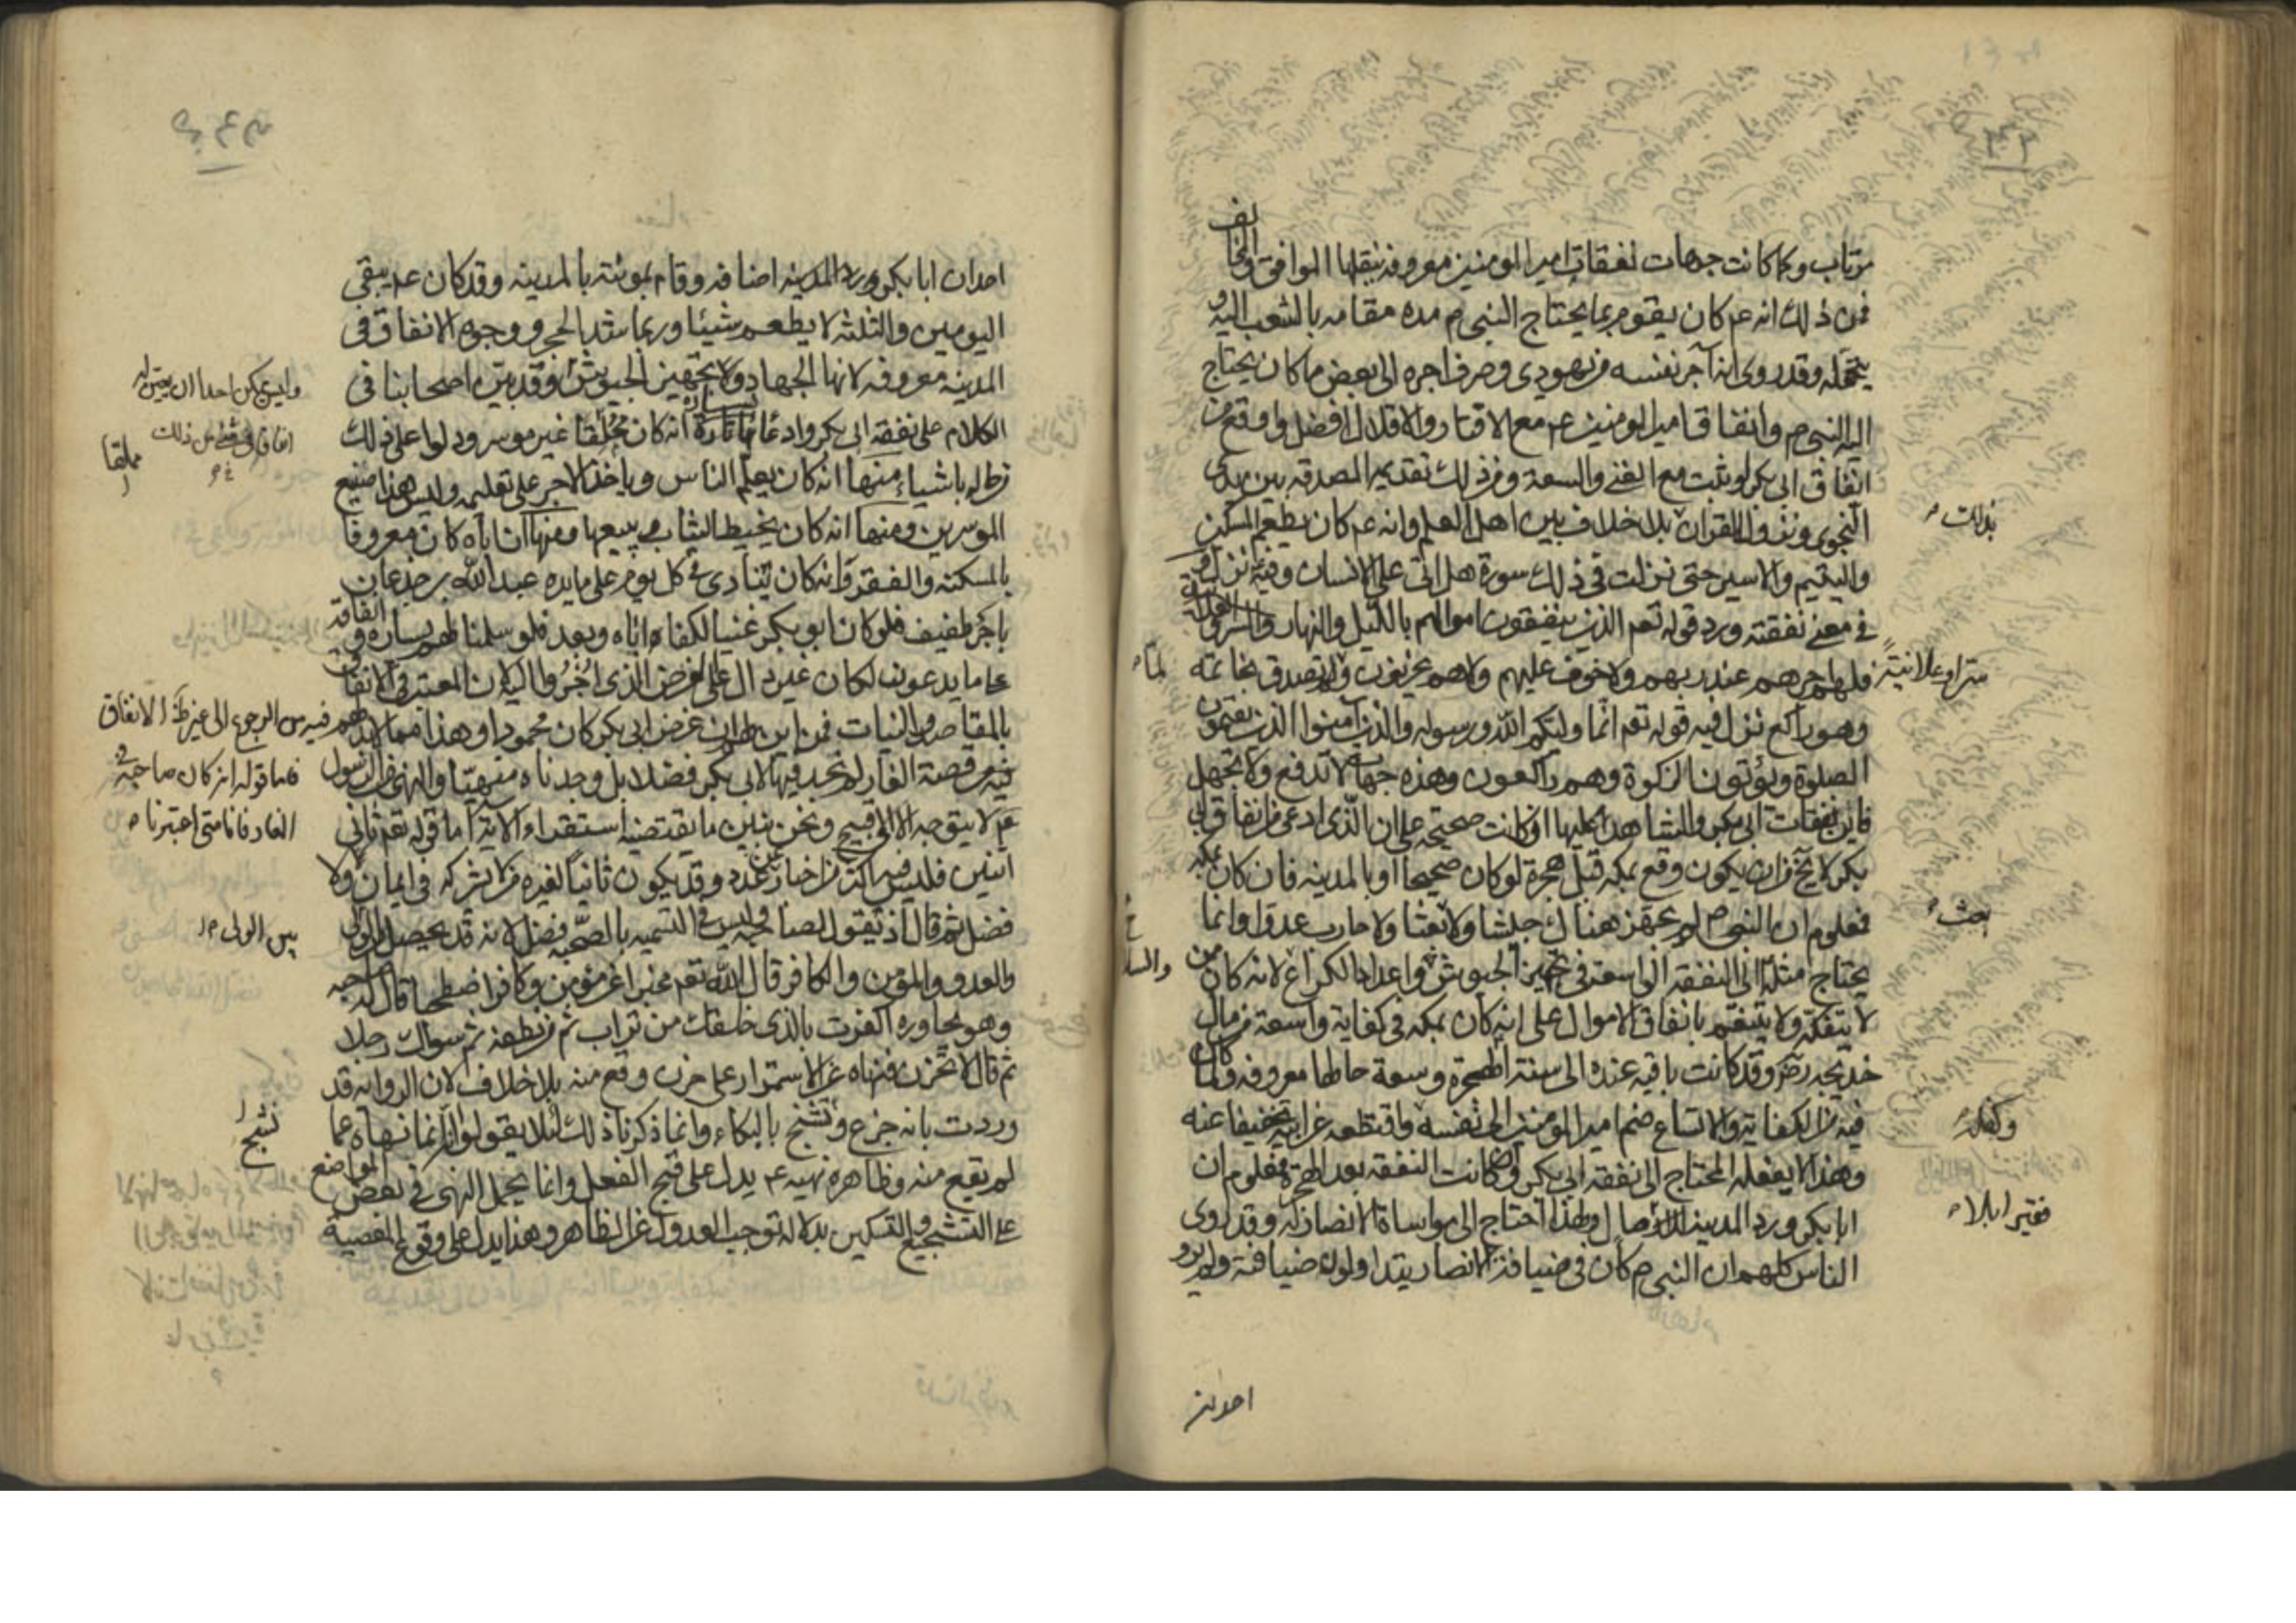 يرتاب وكما كانت جهات نفقات امير المومنين معروفة ينقلها الموافق والمخالف
فمن ذلك انه عم كان يقوم بما يحتاج النبي م مدة مقامه بالشعب اليه و
يتحمله وقد روى انه آجر نفسه من يهودي وصرف اجره الى بعض ما كان يحتاج
اليه النبي م وانفاق امير المومنين عم مع الاقتار والاقلال افضل واوقع من
انفاق ابى بكر لو ثبت مع الغنى والسعة ومن ذلك تقديمه الصدقة بين يدى
النجوى ونزول القران بلا خلاف بين اهل العلم وانه عم كان يطعم المسكين
بذلك
واليتيم والاسير حتى نزلت فى ذلك سورة هل اتى على الانسان وفيه نزل و
فى معنى نفقته ورد قوله تعم الذين ينفقون اموالهم بالليل والنهار
سرا وعلانية فلهم اجرهم عند ربهم ولا خوف عليهم ولا هم يحزنون تصدق بخاتمه
لما
وهو راكع نزل فيه قوله تعم انما وليكم الله ورسوله والذين آمنوا الذين يقيمون
الصلوة ويؤتون الزكوة وهم راكعون وهذه جهات لا تدفع ولا تجهل
فاين نفقات ابى بكر والشاهد عليها ان كانت صحيحة على ان الذى ادعى من انفاق ابى
بكر لا يخ من ان يكون وقع بمكه قبل هجرة لو كان صحيحا او بالمدينه فان كان بمكه
فمعلوم ان النبي م لم يجهز هناك جيشا ولا بعثا ولا حارب عدوا وانما
بعث
يحتاج مثله الى النفقه الواسعة فى تجهيز الجيوش واعداد الكراع لانه كان من
لا يتفكه ولا يتنعم بانفاق الاموال على انه كان بمكه فى كفاية واسعة من مال
خديجه رض وقد كانت باقيه عنده الى سنة الهجرة وسعة حالها معروفه ولما كان
فيه من الكفاية والاتساع ضم امير المومنين الى نفسه واقتطعه عن ابيه تخفيفا عنه
وكفله
وهذا لا يفعله المحتاج الى نفقه ابى بكر وان كانت النفقه بعد الهجرة فمعلوم ان
ابا بكر ورد المدينه ولهذا احتاج الى مواساة الانصار له وقد روى
فقيرا بلا
الناس كلهم ان النبي م كان فى ضيافة الانصار يتداولون ضيافته ولم يرو
احد ان
احد ان ابا بكر ورد المدينه اضافه وقام بموئنته بالمدينه وقد كان عم يبقى
اليومين والثلثه لا يطعم شيئا وربما شد الحجر ووجوه الانفاق فى
المدينه معروفه لانها الجهاد وتجهيز الجيوش وقد بين اصحابنا فى
وليس يمكن احدا ان يبين له
الكلام على نفقه ابى بكر وادعا يساره انه كان مملقا غير موسر ودلوا على ذلك
انفاق فى شئ من ذلك
مملقا
من حاله باشياء منها انه كان يعلم الناس وياخذ الاجر على تعليمه وليس هذا صنيع
الموسرين ومنها انه كان يخيط الثياب ويبيعها ومنها ان اباه كان معروفا
بالمسكنة والفقر وانه كان ينادى فى كل يوم على مايده عبدالله بن جدعان
باجر طفيف فلو كان ابو بكر غنيا لكفاه اباه وبعد فلو سلمنا لهم يساره و
على ما يدعونه لكان غير دال على الغرض الذى اجروا اليه لان المعتبر فى الانفاق
بالمقاصد والنيات فمن اين لهم ان غرض ابى بكر كان محمودا وهذا مما لا بد لهم
فيه من الرجوع الى غير ظاهر الانفاق
فاما قوله انه كان صاحبه فى
الغار فانا متى اعتبرنا
قصة الغار لم نجد فيها لابى بكر فضلا بل وجدناه منهيا والنهى من الرسول
عم لا يتوجه الا الى قبيح ونحن نبين ما يقتضيه استقراء الاية اما قوله تعم ثانى
اثنين فليس فيه اكثر من اخبار عن عدد وقد يكون ثانيا لغيره من لا يشركه فى ايمان ولا
فضل ثم قال اذ يقول لصاحبه وليس فى التسميه بالصحبه فضل لانه قد يحصل
بين الولى
والعدو والمؤمن والكافر قال الله تعم مخبرا عن مؤمن وكافر اصطحبا قال له صاحبه
وهو يحاوره اكفرت بالذى خلقك من تراب ثم من نطفة ثم سواك رجلا
ثم قال لا تحزن فنهاه عن الاستمرار على حزن وقع منه بلا خلاف لان الروايه قد
وردت بانه جزع ونشج بالبكاء وانما ذكرنا ذلك لئلا يقولوا انما نهاه عما
نشج
لم يقع منه وظاهره نهيه عم يدل على قبح الفعل وانما يحمل النهى فى بعض المواضع
على التشجيع والتسكين بدلالة توجب العدول عن الظاهر وهذا يدل على وقوع المعصية